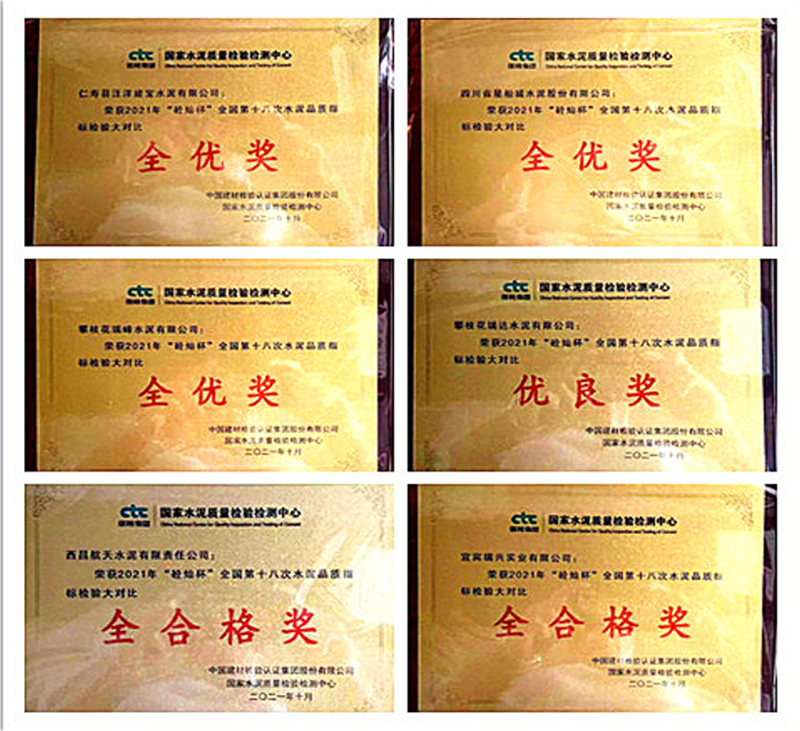 ctc 国家水泥质量检验检测中心
国检集团 China National Center for Quality Inspection and Testing of Cement
仁寿县汪洋建宝水泥有限公司：
荣获2021年“砼灿杯”全国第十八次水泥品质指
标检验大对比
全优奖
中国建材检验认证集团股份有限公司
国家水泥质量检验检测中心
二〇二一年十月
ctc 国家水泥质量检验检测中心
国检集团 China National Center for Quality Inspection and Testing of Cement
四川省星船城水泥股份有限公司：
荣获2021年“砼灿杯”全国第十八次水泥品质指
标检验大对比
全优奖
中国建材检验认证集团股份有限公司
国家水泥质量检验检测中心
二〇二一年十月
ctc 国家水泥质量检验检测中心
国检集团 China National Center for Quality Inspection and Testing of Cement
攀枝花瑞峰水泥有限公司：
荣获2021年“砼灿杯”全国第十八次水泥品质指
标检验大对比
全优奖
中国建材检验认证集团股份有限公司
国家水泥质量检验检测中心
二〇二一年十月
ctc 国家水泥质量检验检测中心
国检集团 China National Center for Quality Inspection and Testing of Cement
攀枝花瑞达水泥有限公司：
荣获2021年“砼灿杯”全国第十八次水泥品质指
标检验大对比
优良奖
中国建材检验认证集团股份有限公司
国家水泥质量检验检测中心
二〇二一年十月
ctc 国家水泥质量检验检测中心
国检集团 China National Center for Quality Inspection and Testing of Cement
西昌航天水泥有限责任公司：
荣获2021年“砼灿杯”全国第十八次水泥品质指
标检验大对比
全合格奖
中国建材检验认证集团股份有限公司
国家水泥质量检验检测中心
二〇二一年十月
ctc 国家水泥质量检验检测中心
国检集团 China National Center for Quality Inspection and Testing of Cement
宜宾瑞兴实业有限公司：
荣获2021年“砼灿杯”全国第十八次水泥品质指
标检验大对比
全合格奖
中国建材检验认证集团股份有限公司
国家水泥质量检验检测中心
二〇二一年十月